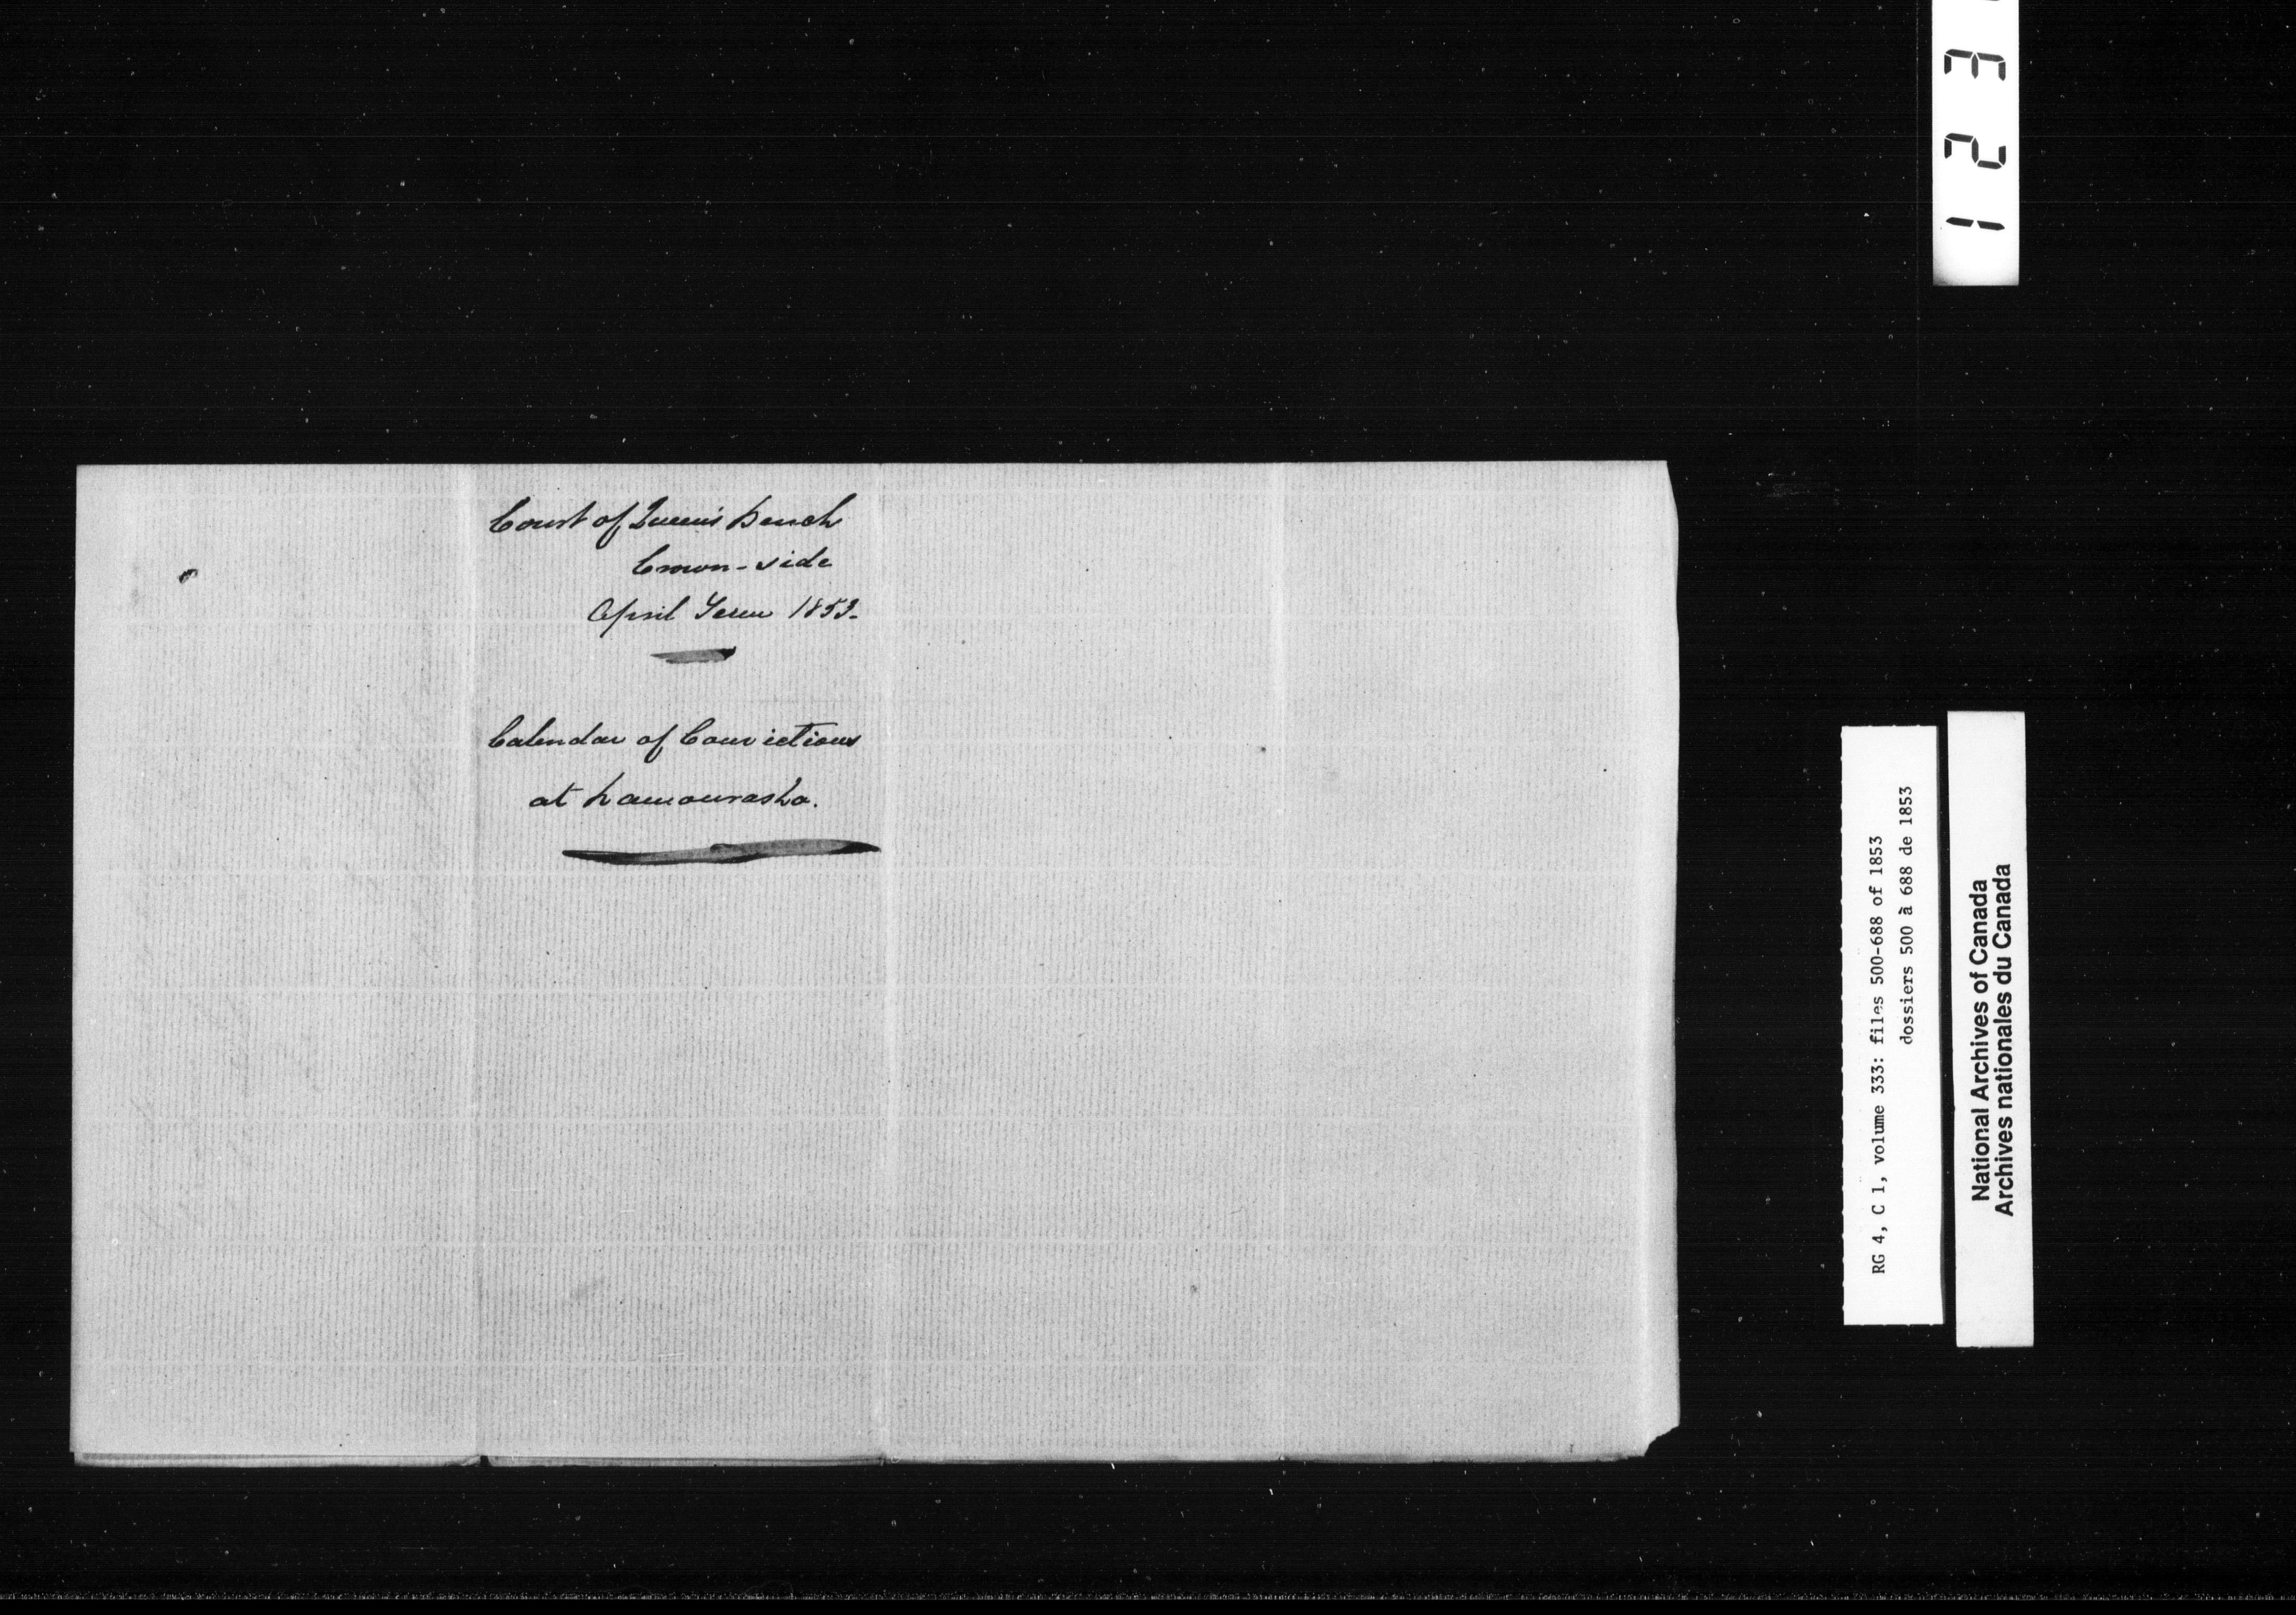 Court of Queen's Bench
Crown-side
April Term 1853-
Calendar of Convictions
at Kamouraska.
RG 4, C 1, volume 333: files 500-688 of 1853
dossiers 500 à 688 de 1853
National Archives of Canada
Archives nationales du Canada
1 2 3